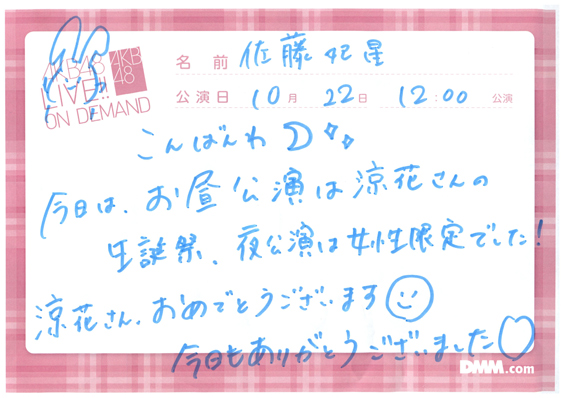 AKB48
LIVE!!
ON DEMAND
AKB
48
名前 佐藤妃星
公演日 10月 22日 12:00 公演
こんばんわ
今日は、お昼公演は涼花さんの
生誕祭、夜公演は女性限定でした!
涼花さん、おめでとうございます
今日もありがとうございました♡
DMM.com